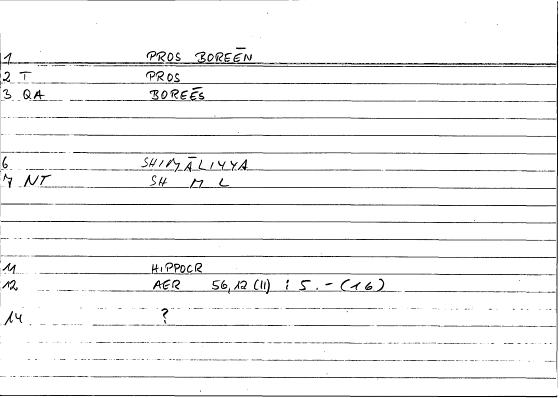 1 PROS BOREĒN
2 T PROS
3 QA BOREĒS
6 SHIMĀLIYYA
7 NT SH M L
11 HIPPOCR
12 AER 56,12 (11) : 5. - (16)
14 ?